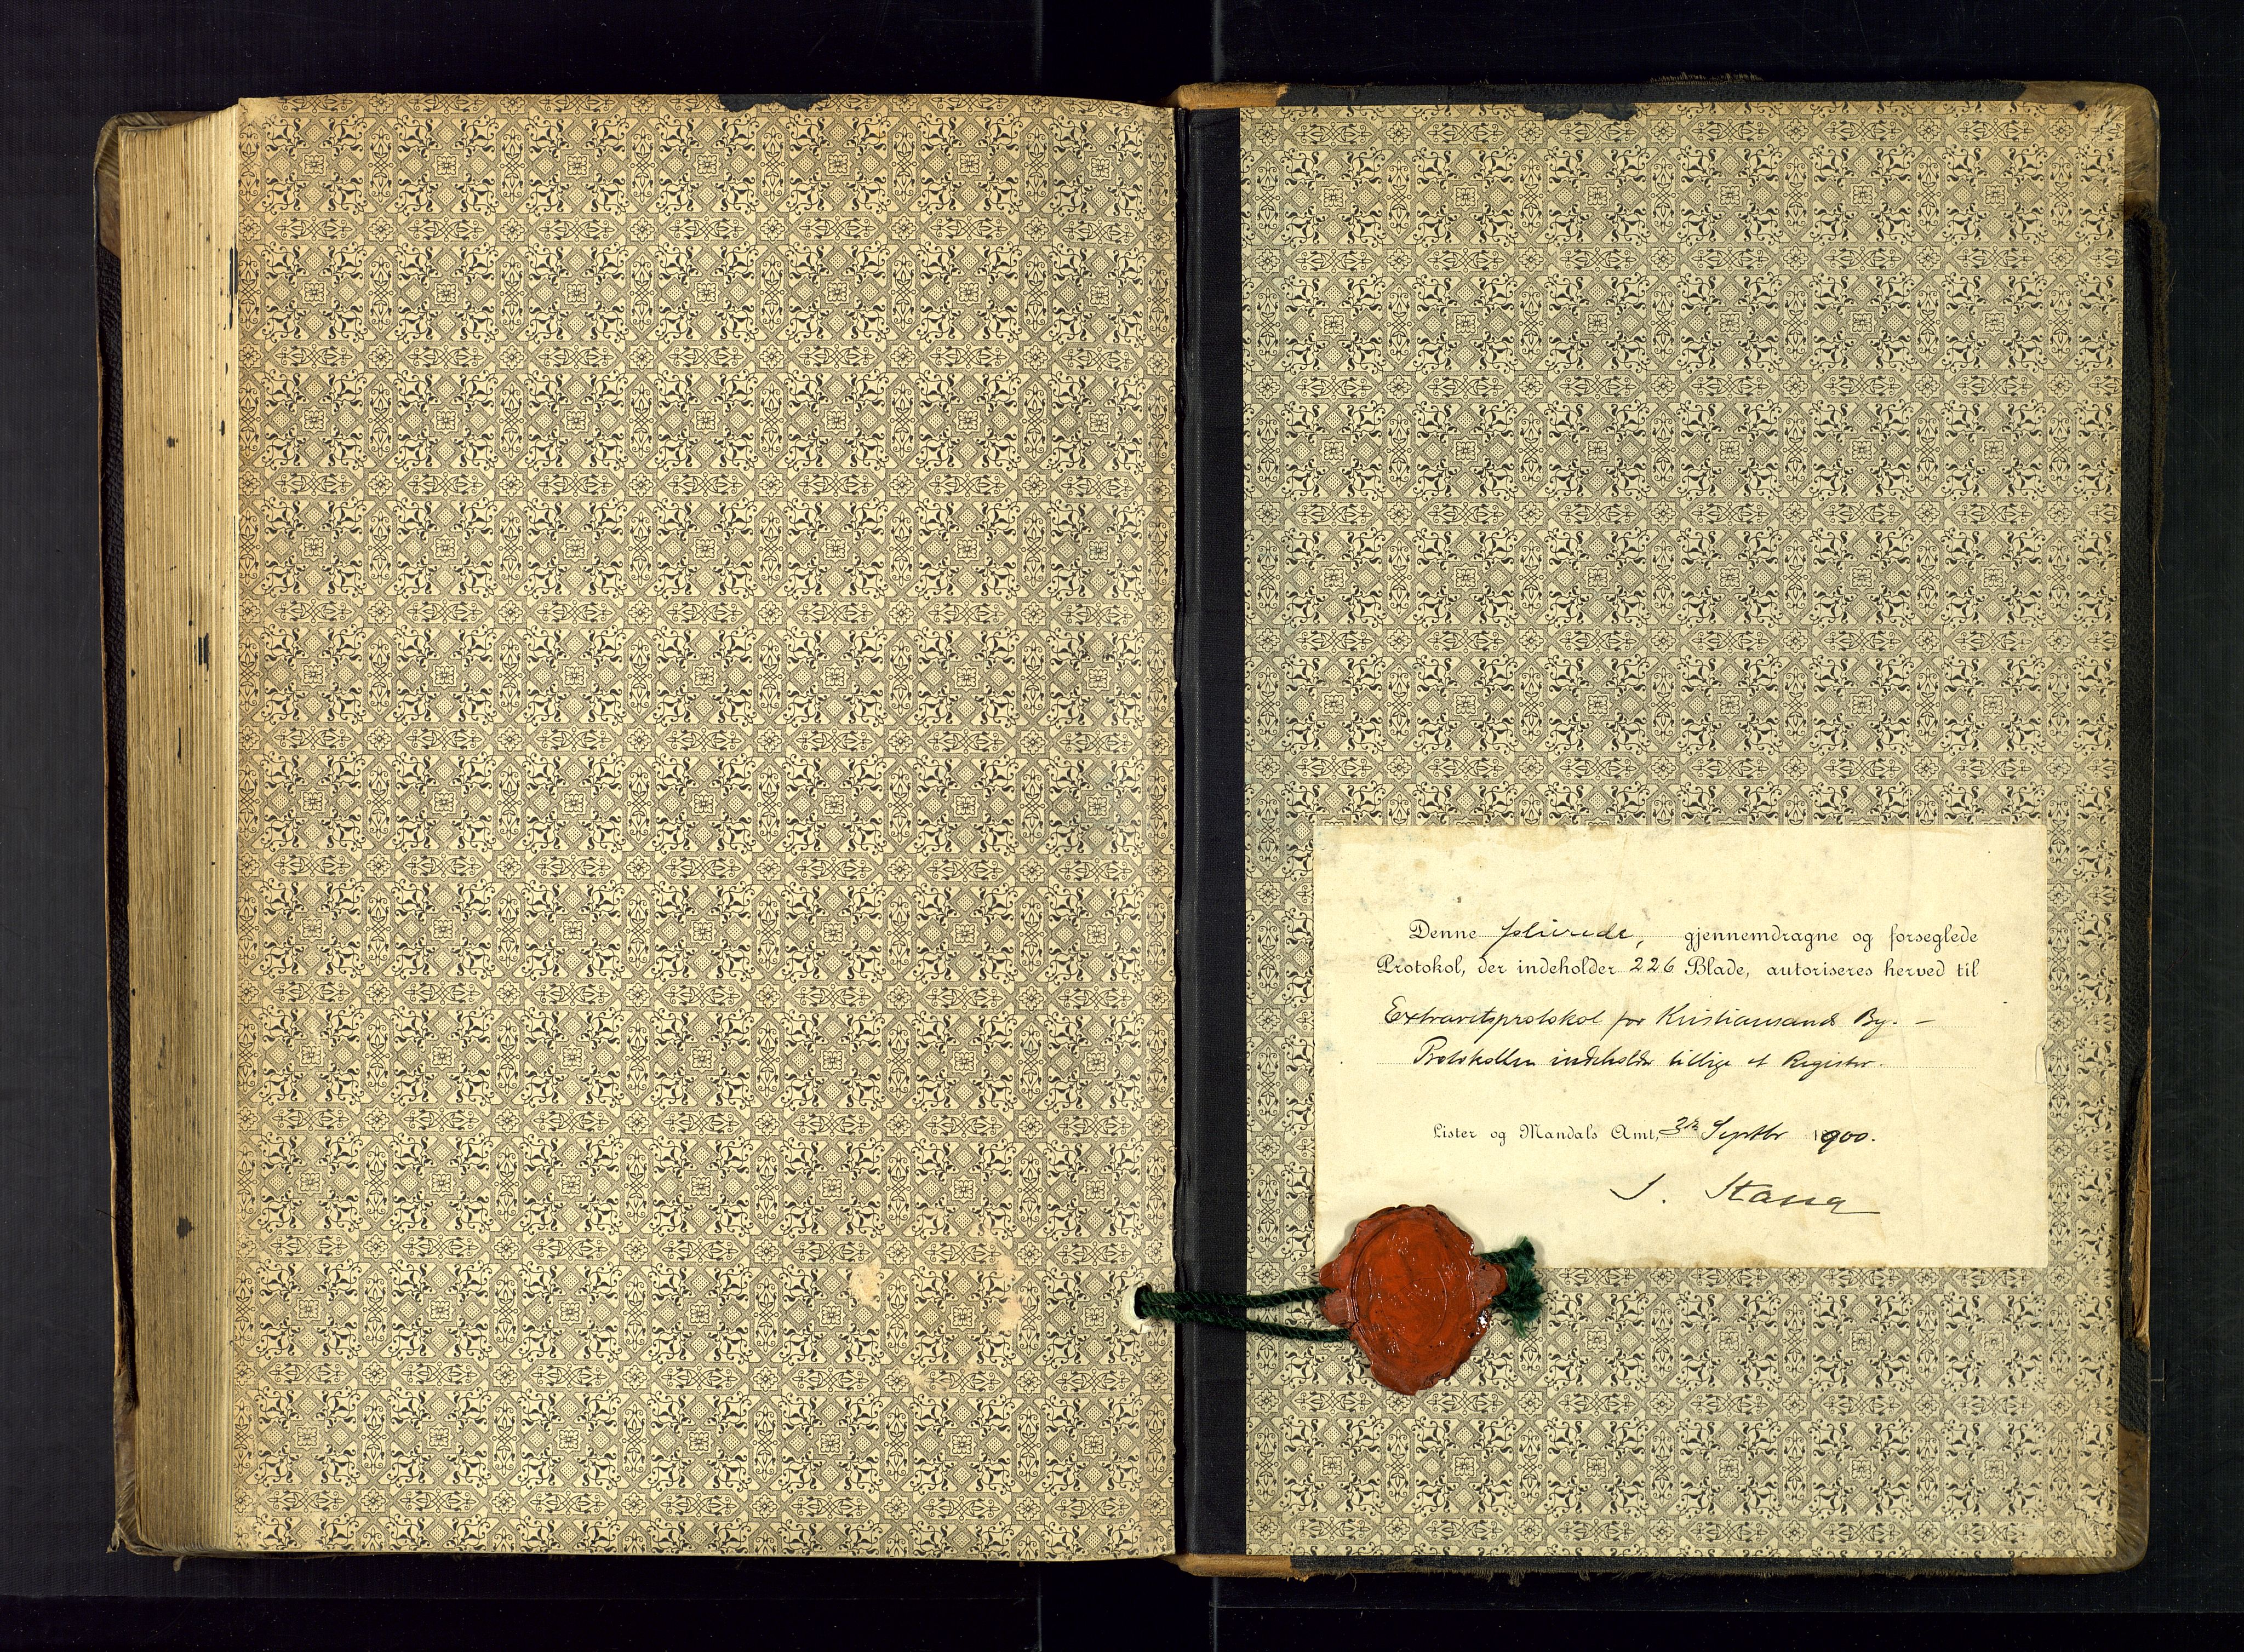 Denne folierede, gjennemdragne og forseglede
Protokol, der indeholder 226 Blade, autoriseres herved til
Extraretsprotokol for Kristiansands By. –
Protokollen indeholder tillige et Register.
Lister og Mandals Amt, 3die Septbr 1900.
S. Stang